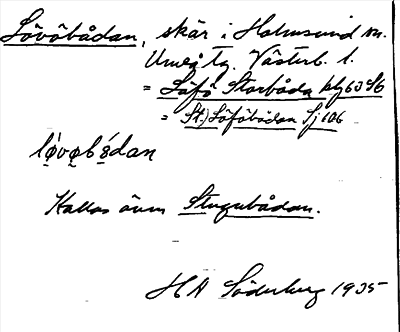 Lövöbådan, skär i Holmsund sn.
Umeå tg. Västerb. l.
= Löfö Storbåda blg 63 S6
= St.) Löföbådan Sj 106
lövobådan
Kallas även Stugubådan.
HA Söderberg 1935